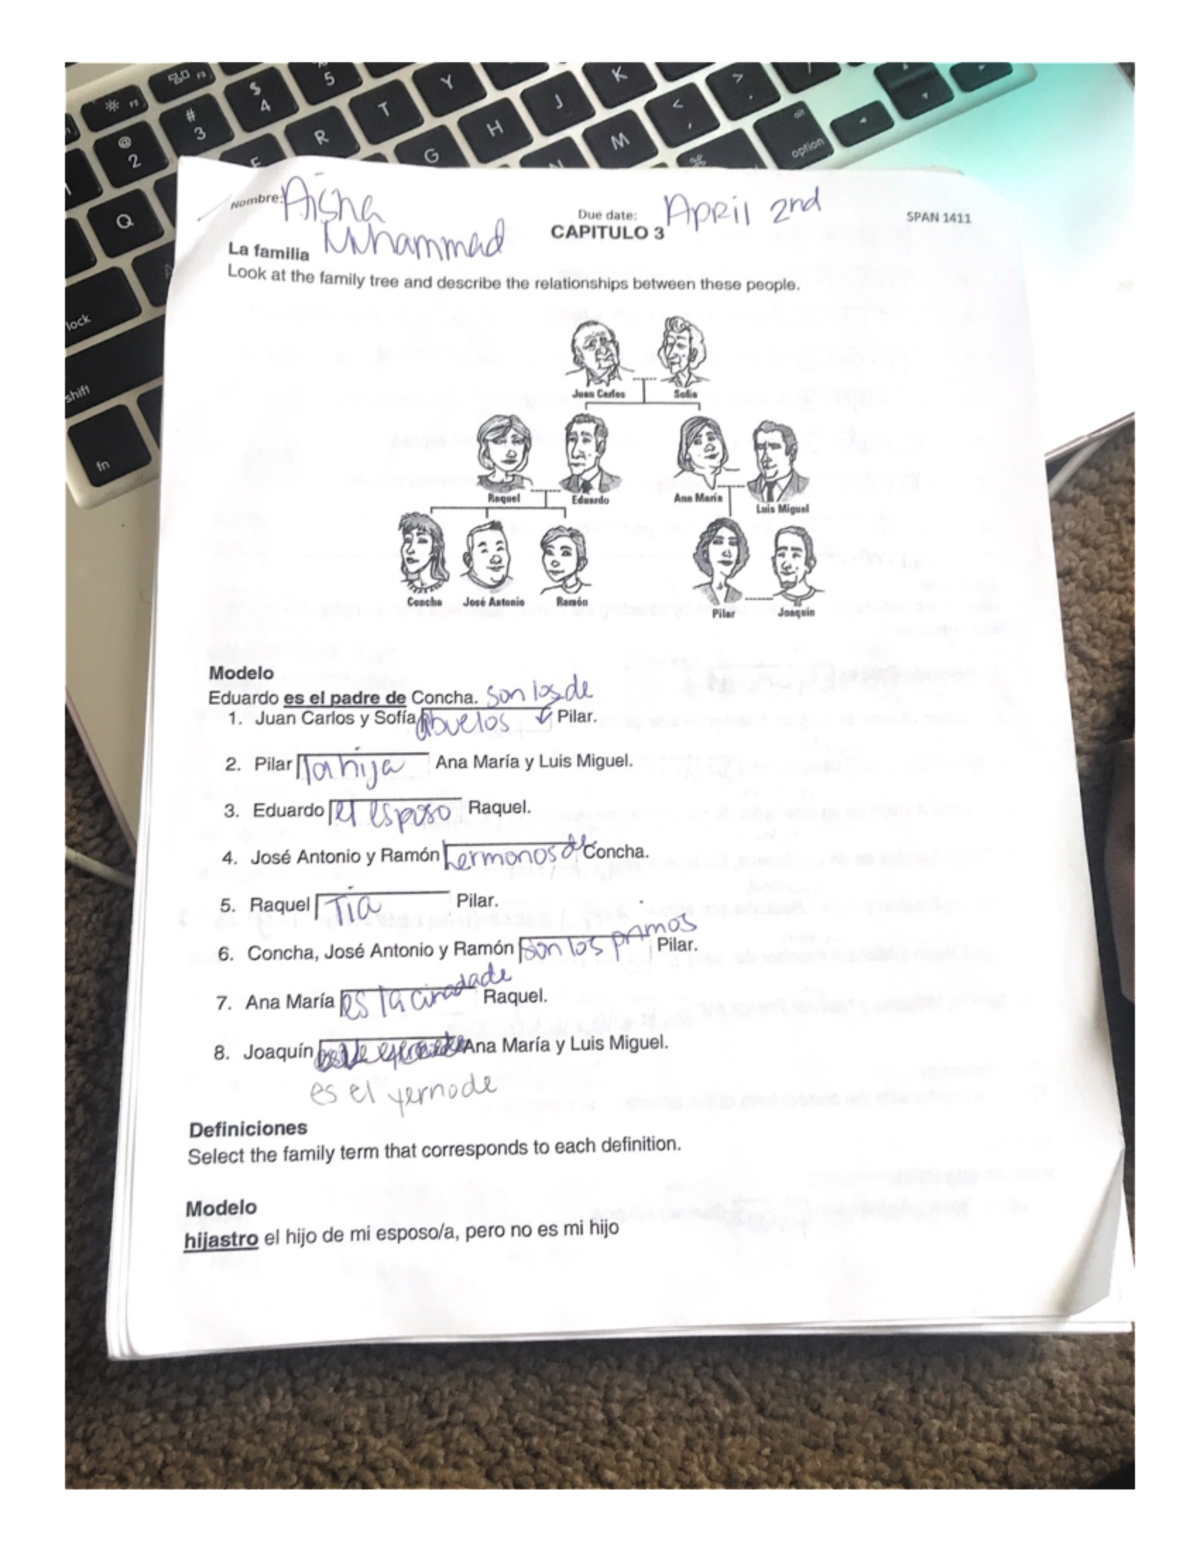 F3
F2
%
5
$
4
#
3
@
2
Y
T
R
Q
K
J
H
G
M
N
>
.
<
,
⌘
alt
option
lock
shift
fn
Nombre: Aisha Muhammad
Due date: April 2nd
SPAN 1411
CAPITULO 3
La familia
Look at the family tree and describe the relationships between these people.
Juan Carlos Sofía
Raquel Eduardo Ana María Luis Miguel
Concha José Antonio Ramón Pilar Joaquín
Modelo
Eduardo es el padre de Concha.
1. Juan Carlos y Sofía son los abuelos de Pilar.
2. Pilar la hija Ana María y Luis Miguel.
3. Eduardo el esposo Raquel.
4. José Antonio y Ramón hermonos de Concha.
5. Raquel Tia Pilar.
6. Concha, José Antonio y Ramón son los primos Pilar.
7. Ana María es la cinadade Raquel.
8. Joaquín Ana María y Luis Miguel.
es el yerno de
Definiciones
Select the family term that corresponds to each definition.
Modelo
hijastro el hijo de mi esposo/a, pero no es mi hijo